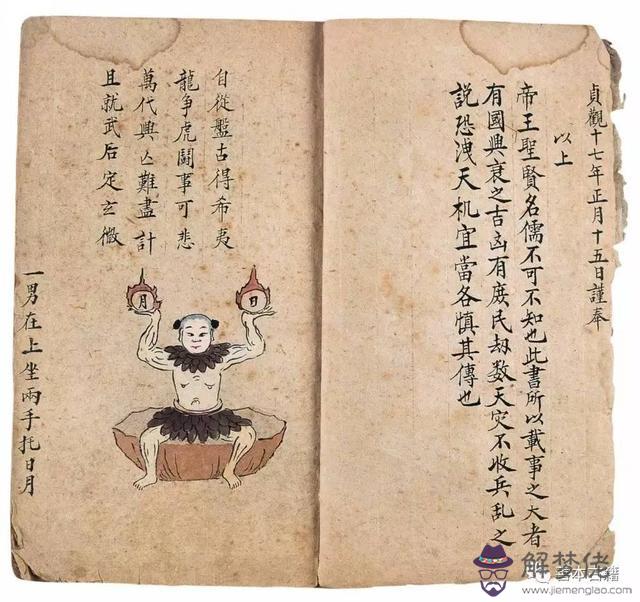 貞觀十七年正月十五日謹奉
以上
帝王聖賢名儒不可不知也此書所以載事之大者
有國興衰之吉凶有庶民劫数天灾不收兵乱之
説恐洩天机宜當各慎其傳也
自從盤古得希夷
龍争虎鬪事可悲
萬代興亾難盡計
且就武后定玄微
日
月
一男在上坐兩手托日月
解梦佬
www.jiemenglao.com
善本古籍